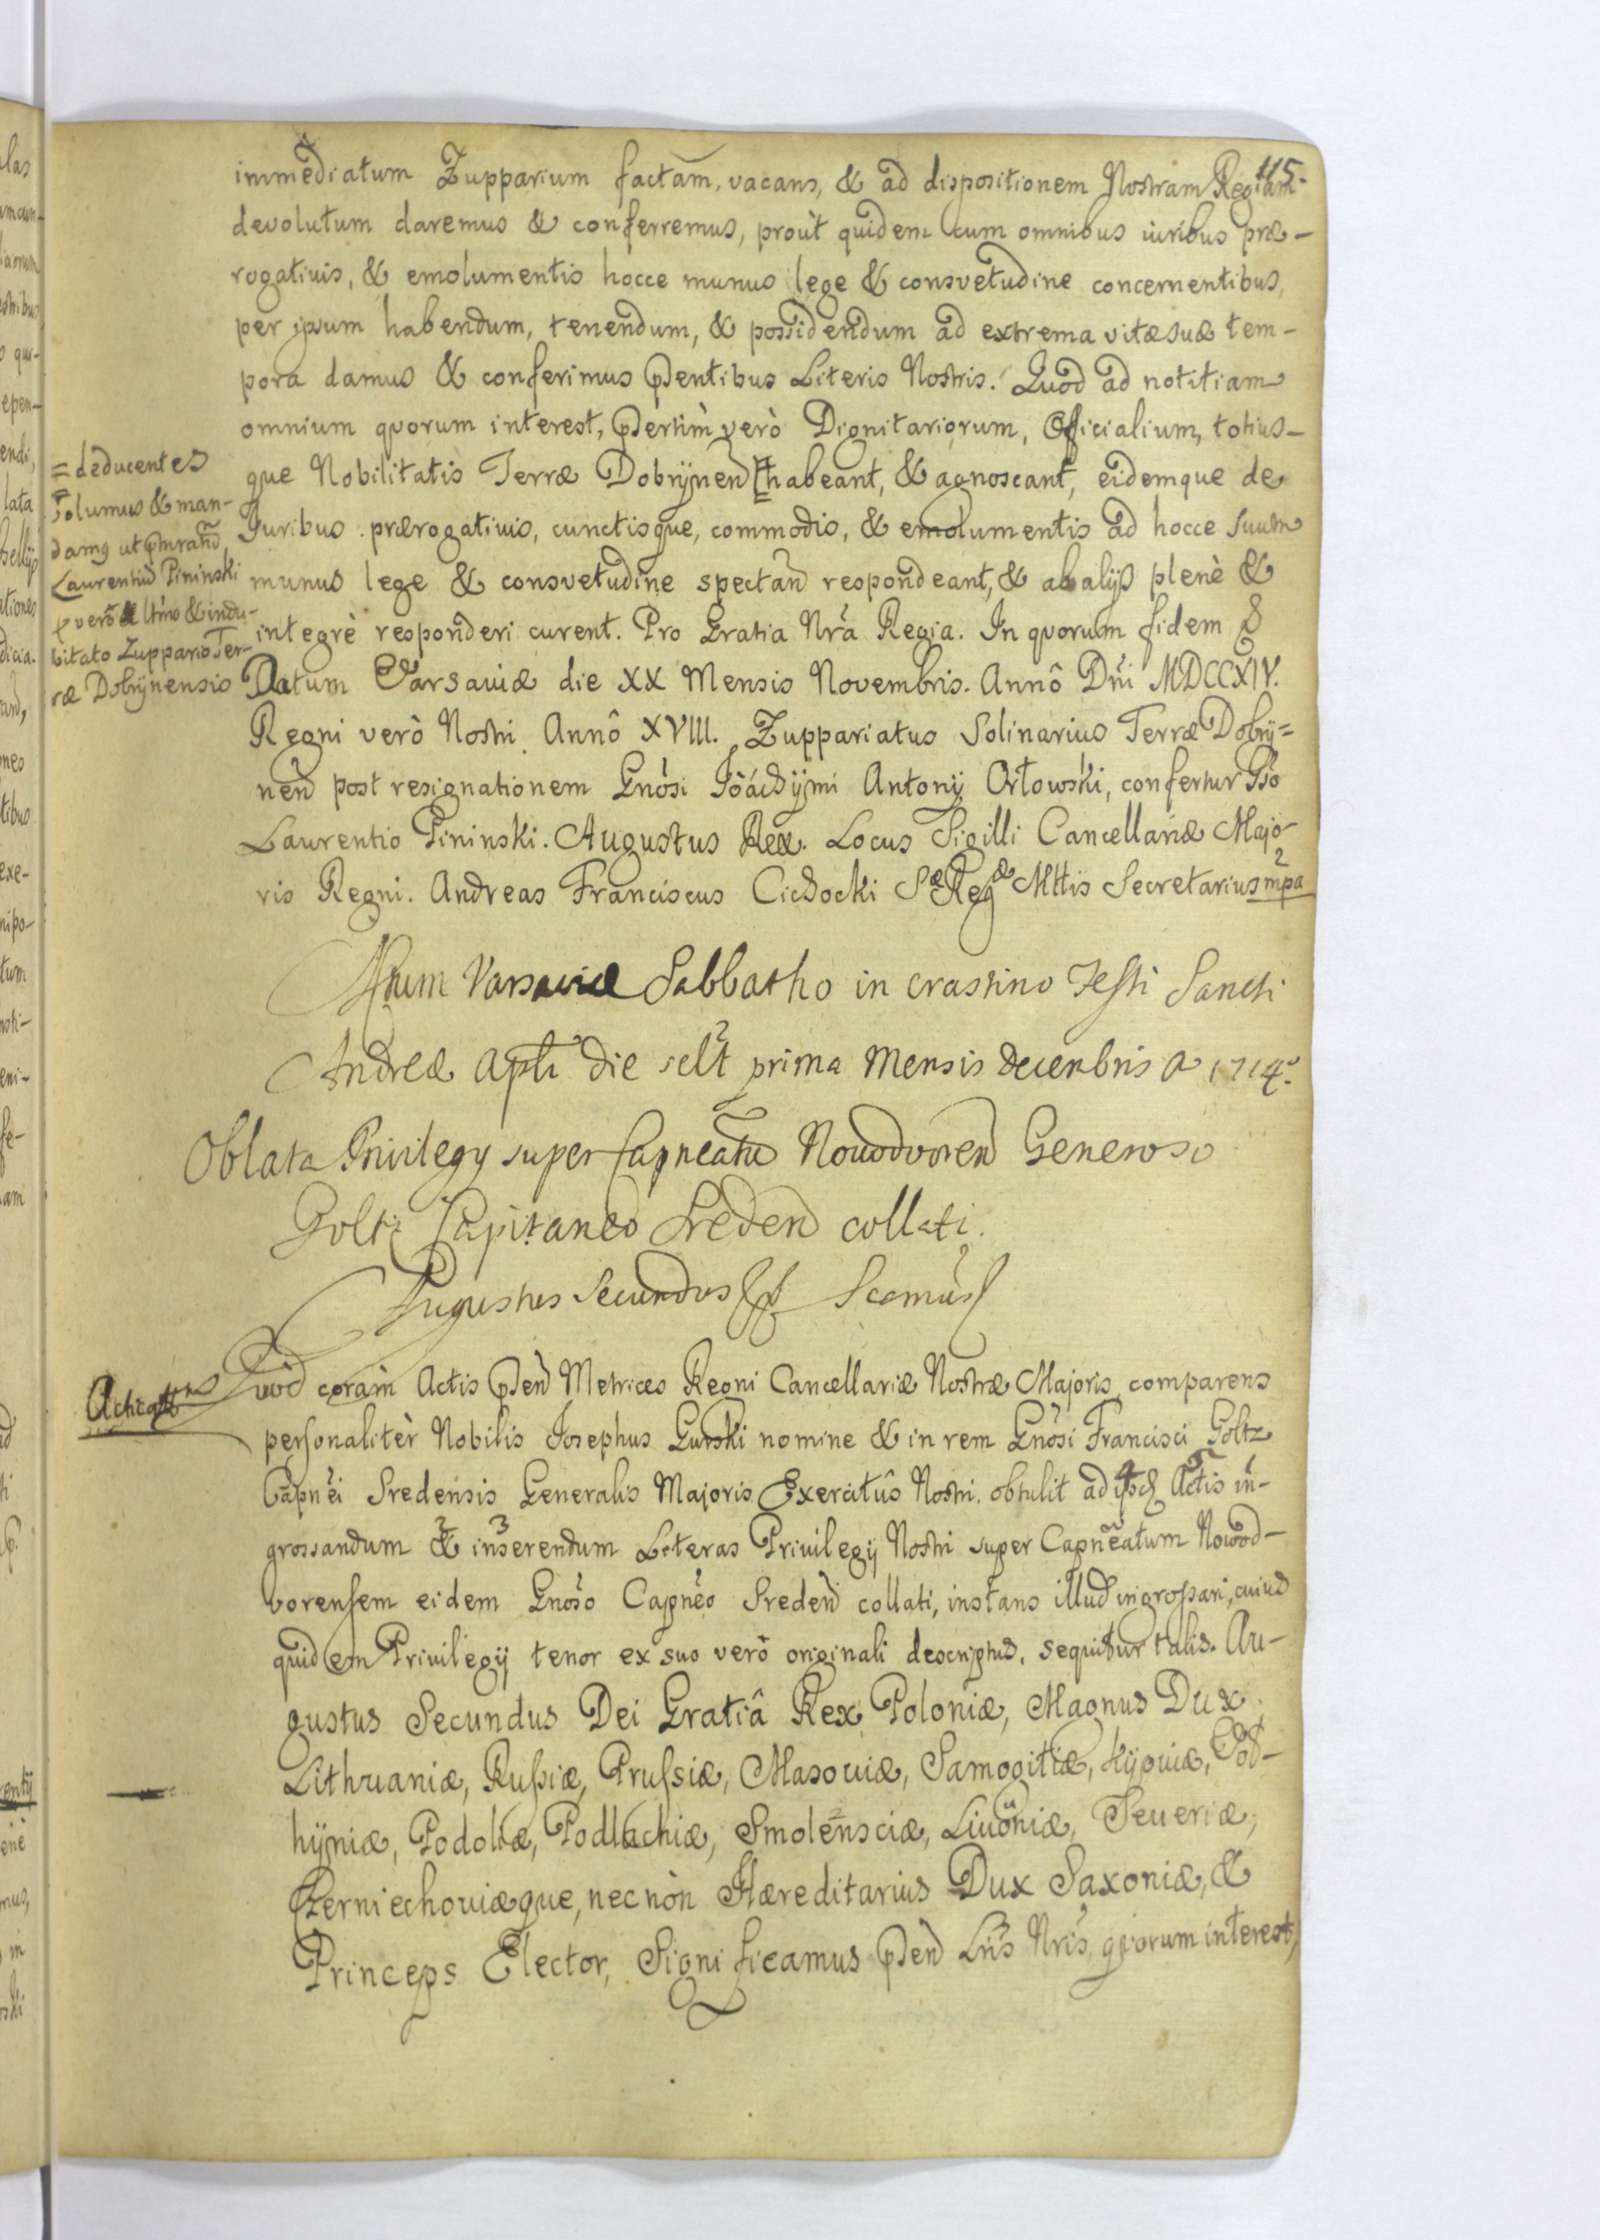 115.
immediatum Zupparium factam, vacans, & ad dispositionem Nostram Regiam
devolutum daremus & conferremus, proùt quidem cum omnibus iuribus præ-
rogativis, & emolumentis hocce munus lege & consvetudine concernentibus,
per ipsum habendum, tenendum, & possidendum ad extrema vitæ suæ tem-
pora damus & conferimus pŝentibus Literis Nostris. Quod ad notitiam
omnium quorum interest, pŝertim verò Dignitariorum, Officialium, totius-
que Nobilitatis Terræ Dobrÿnen habeant, & agnoscant, eidemque de
Juribus prærogativis, cunctisque, commodis, & emolumentis ad hocce suum
munus lege & consvetudine spectan respondeant, & ab alijs plenè &
integrè responderi curent. Pro Gratia Nrâ Regia. In quorum fidem &
Datum Varsaviæ die XX Mensis Novembris. Annô Dni MDCCXIV.
Regni verò Nostri Annô XVIII. Zuppariatus Solinarius Terræ Dobrÿ=
nen post resignationem Gnôsi Joáchÿmi Antonij Orłowski, confertur Gso
Laurentio Pininski. Augustus Rex. Locus Sigilli Cancellariæ Majo-
ris Regni. Andreas Franciscus Cichocki Sæ Regæ Mttis Secretarius mpa
= deducentes
volumus & man-
damq ut
Laurentiu Pininski
p vero & ltmo & indu-
bitato Zuppario Ter-
ræ Dobrÿnensis
Actum Varsaviæ Sabbatho in crastino Festi Sancti
Andreæ Apli die sclt prima Mensis Decembris A 1714º
Oblata Privilegy super Capneatu Nowodvoren Generoso
Goltz Capitaneo Sreden collati.
Augustus Secundus Scamus
Acticatt
Quod coràm Actis pŝen Metrices Regni Cancellariæ Nostræ Majoris comparens
personalitèr Nobilis Josephus Gurski nomine & in rem Gnôsi Francisci Goltz
Capnei Sredensis Generalis Majoris Exercitûs Nostri. obtulit ad Actis in-
grossandum & inserendum Literas Privilegij Nostri super Capneatum Nowod-
vorensem eidem Gnôso Capneo Sreden collati, instans illud ingrossari, cuius
quidem Privilegij tenor ex suo verò originali descriptus, sequitur talis. Au-
gustus Secundus Dei Gratiâ Rex Poloniæ, Magnus Dux
Lithvaniæ, Russiæ, Prussiæ, Masoviæ, Samogitiæ, Kÿoviæ, Vol-
hÿniæ, Podoliæ, Podlachiæ, Smolensciæ, Livoniæ, Severiæ,
Czerniechoviæque, necnòn Hæreditarius Dux Saxoniæ, &
Princeps Elector, Significamus pŝen Lris Nris, quorum interest,